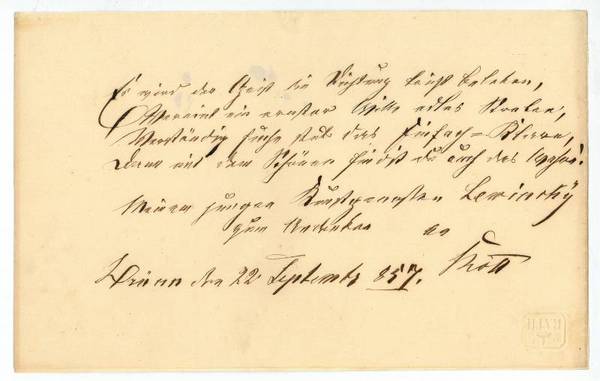 Es wird der Geist die Dichtung leicht beleben,
Vereint ein ernster Wille edles Streben,
Verständig suche stets das Einfach=Klare,
Denn mit dem Schönen findst du auch das Wahre.
Meinem jungen Kunstgenossen Lewinsky
zum Andenken an
Brünn den 22 September 857.